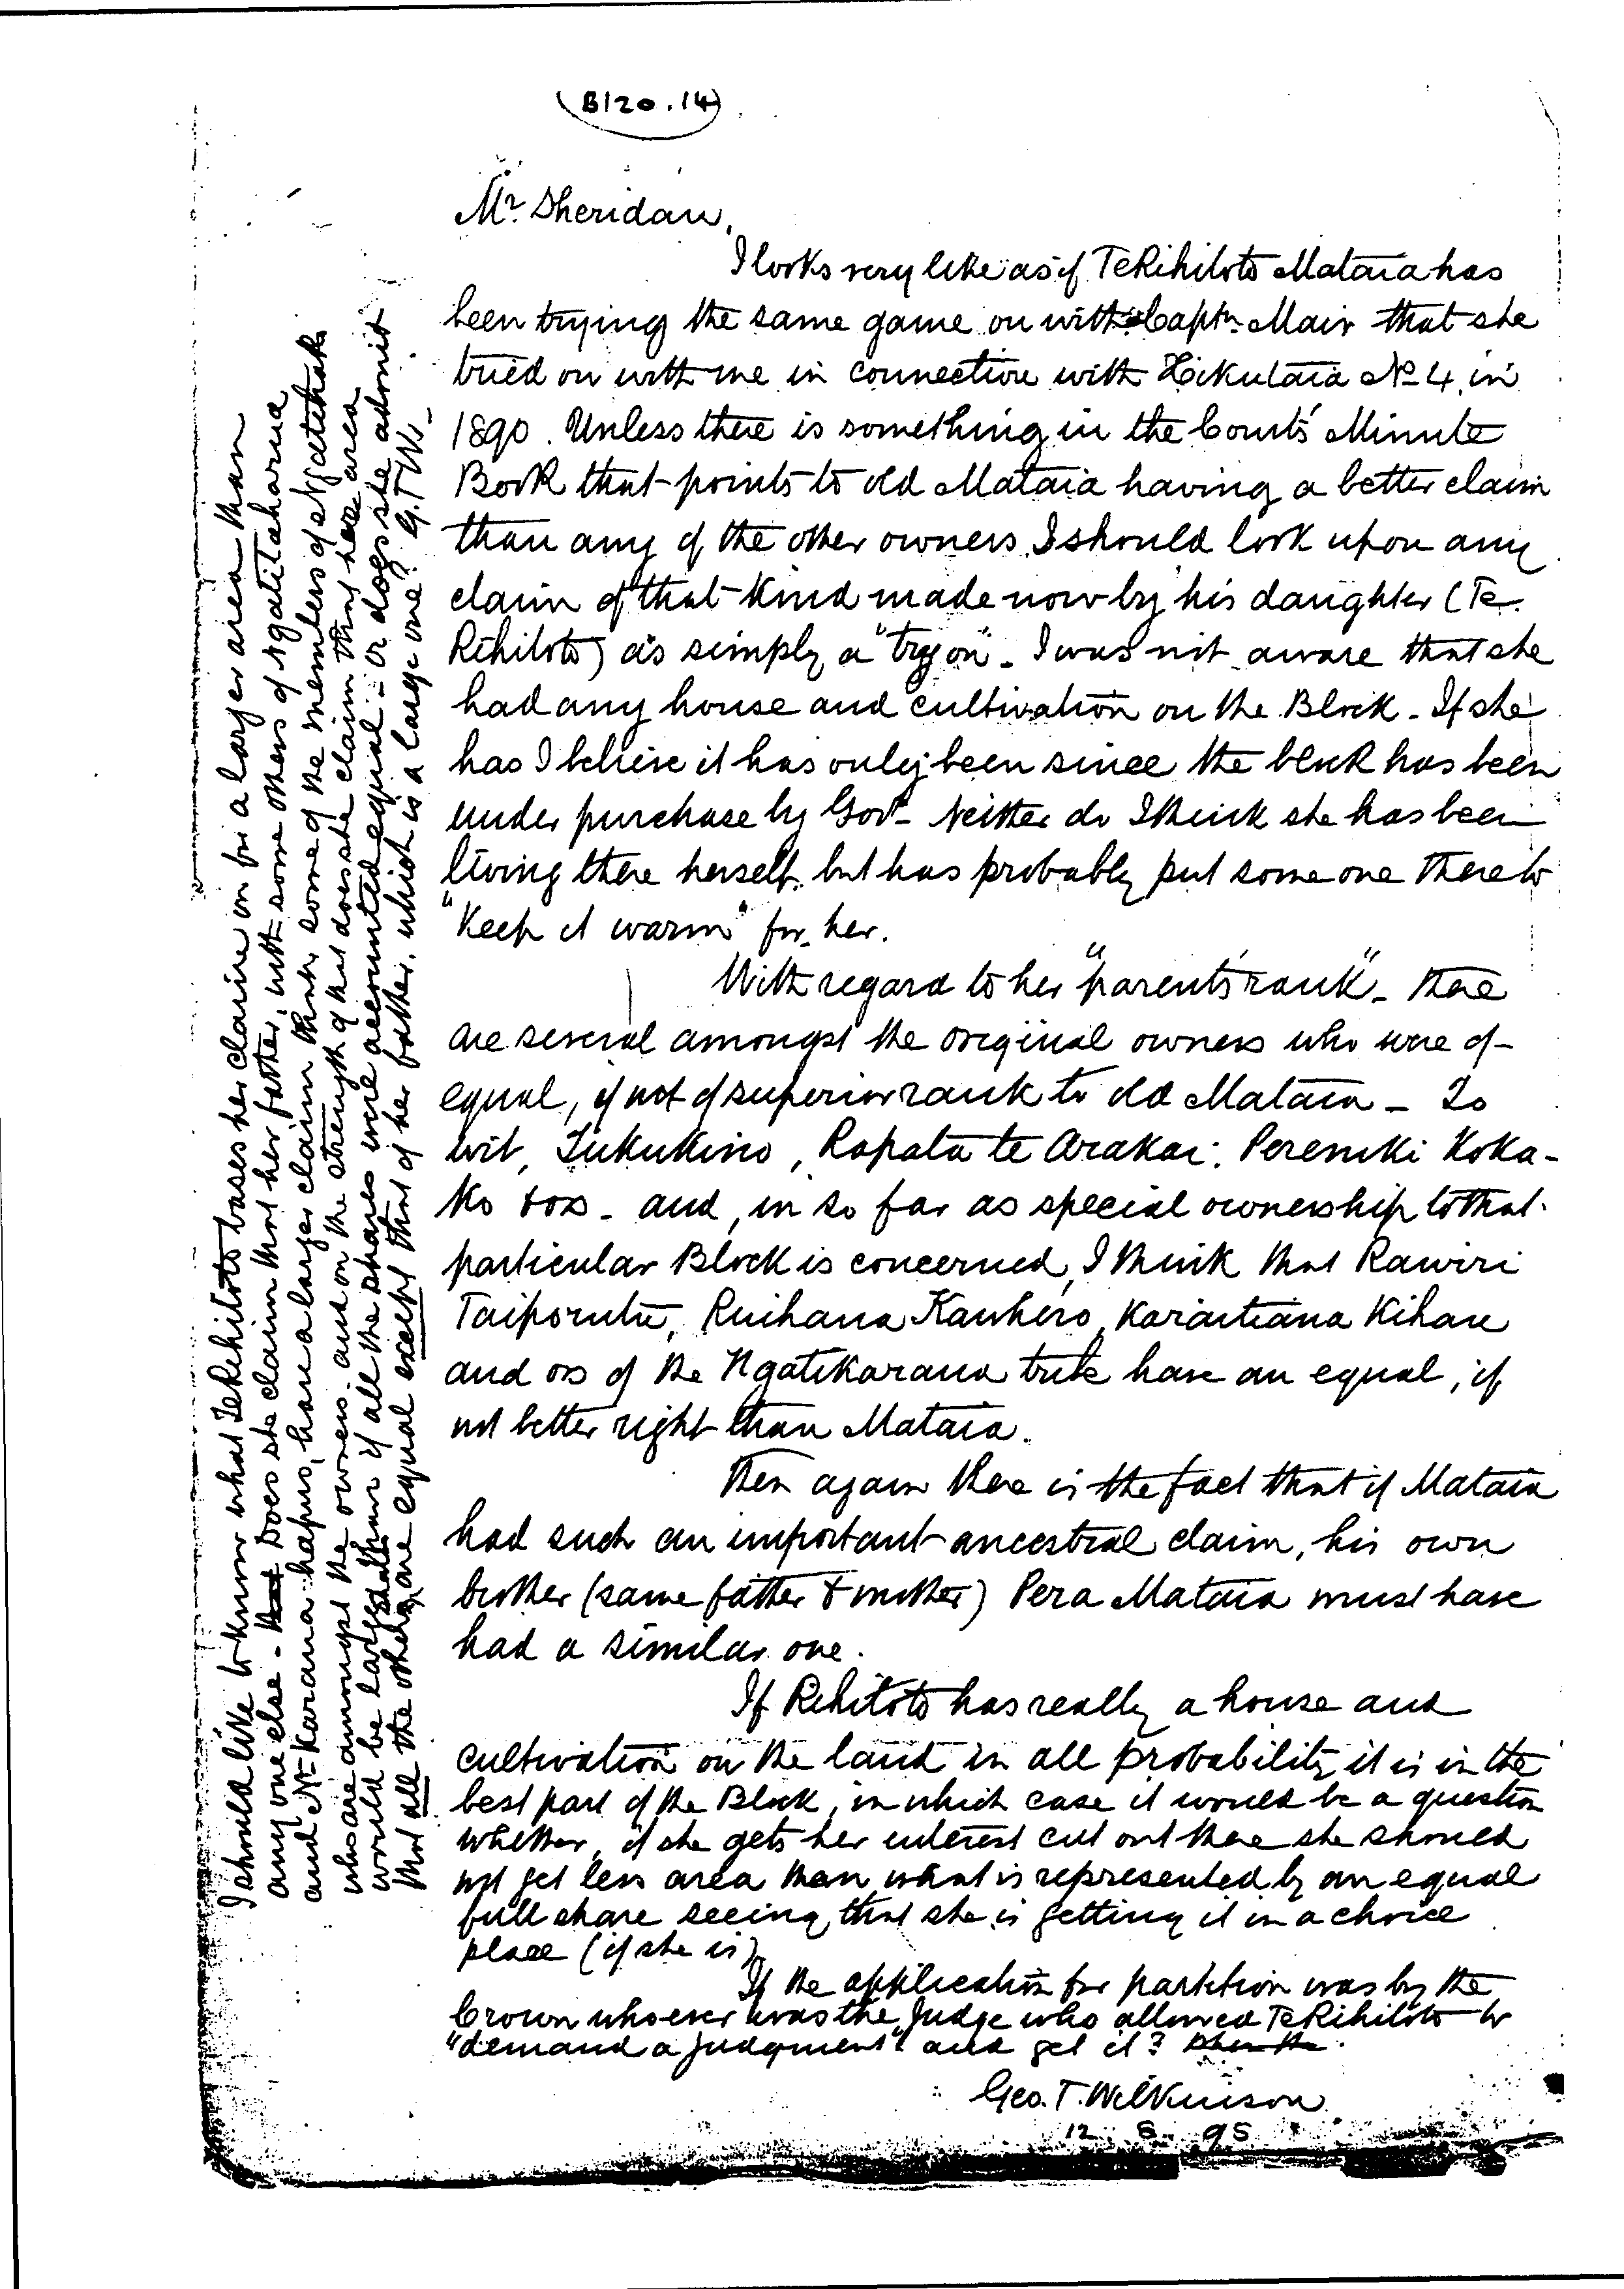 B120.14
Mr. Sheridan,
I looks very like as if Te Rihitoto Mataia has
been trying the same game on with Captn. Mair that she
tried on with me in connection with Hikutaia No 4 in
1890. Unless there is something in the Court's Minute
Book that points to old Mataia having a better claim
than any of the other owners I should look upon any
claim of that kind made now by his daughter (Te
Rihitoto) as simply a "try on". I was not aware that she
had any house and cultivation on the Block. If she
has I believe it has only been since the block has been
under purchase by Govt. Neither do I think she has been
living there herself, but has probably put some one there to
"Keep it warm" for her.
With regard to her "parents' rank" - there
are several amongst the original owners who were of
equal, if not of superior rank to old Mataia - To
wit, Tukukino, Ropata te Arakai, Pereniki Koka-
ko & ors - and, in so far as special ownership to that
particular Block is concerned, I think that Rawiri
Taiporutu, Ruihana Kawhero, Karaitiana Kihau
and ors of the Ngatikarana tribe have an equal, if
not better right than Mataia.
Then again there is the fact that if Mataia
had such an important ancestral claim, his own
brother (same father & mother) Pera Mataia must have
had a similar one.
If Rihitoto has really a house and
cultivation on the land in all probability it is in the
best part of the Block, in which case it would be a question
whether, if she gets her interest cut out there she should
not get less area than what is represented by an equal
full share seeing that she is getting it in a choice
place (if she is)
If the application for partition was by the
Crown whoever was the Judge who allowed Te Rihitoto to
"demand a judgment" and get it? When the
Geo. T. Wilkinson
12. 8. 95
I should like to know what Te Rihitoto bases her claim on for a larger area than
any one else - Does she claim that her father, with some others of Ngatitaharua
and N. Karana hapus, have a larger claim than some of the members of
who are amongst the owners. and on the strength of that does she claim that her area
would be larger than if all the shares were accounted equal - or does she admit
that all the others are equal except that of her father, which is a large one? G.T.W.